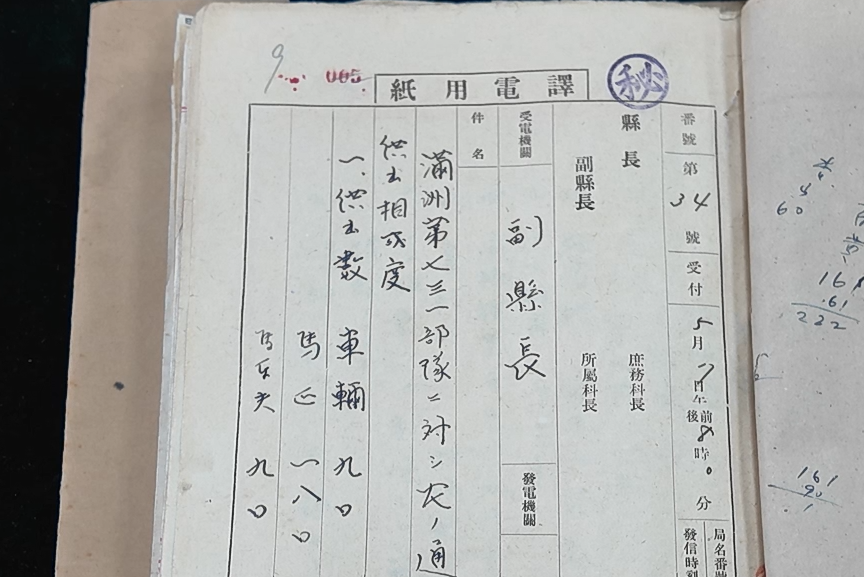 9
005
紙用電譯
秘
番號 第34號 受付 5月7日午前後8時0分
局名番號
發信時刻
縣長 庶務科長
副縣長 所屬科長
受電機關 副縣長 發電機關
件名
滿洲第七三一部隊ニ対シ左ノ通
供出相成度
一、供出数 車輛 九〇
馬匹 一八〇
馬車夫 九〇
60
161
.61
222
161
90